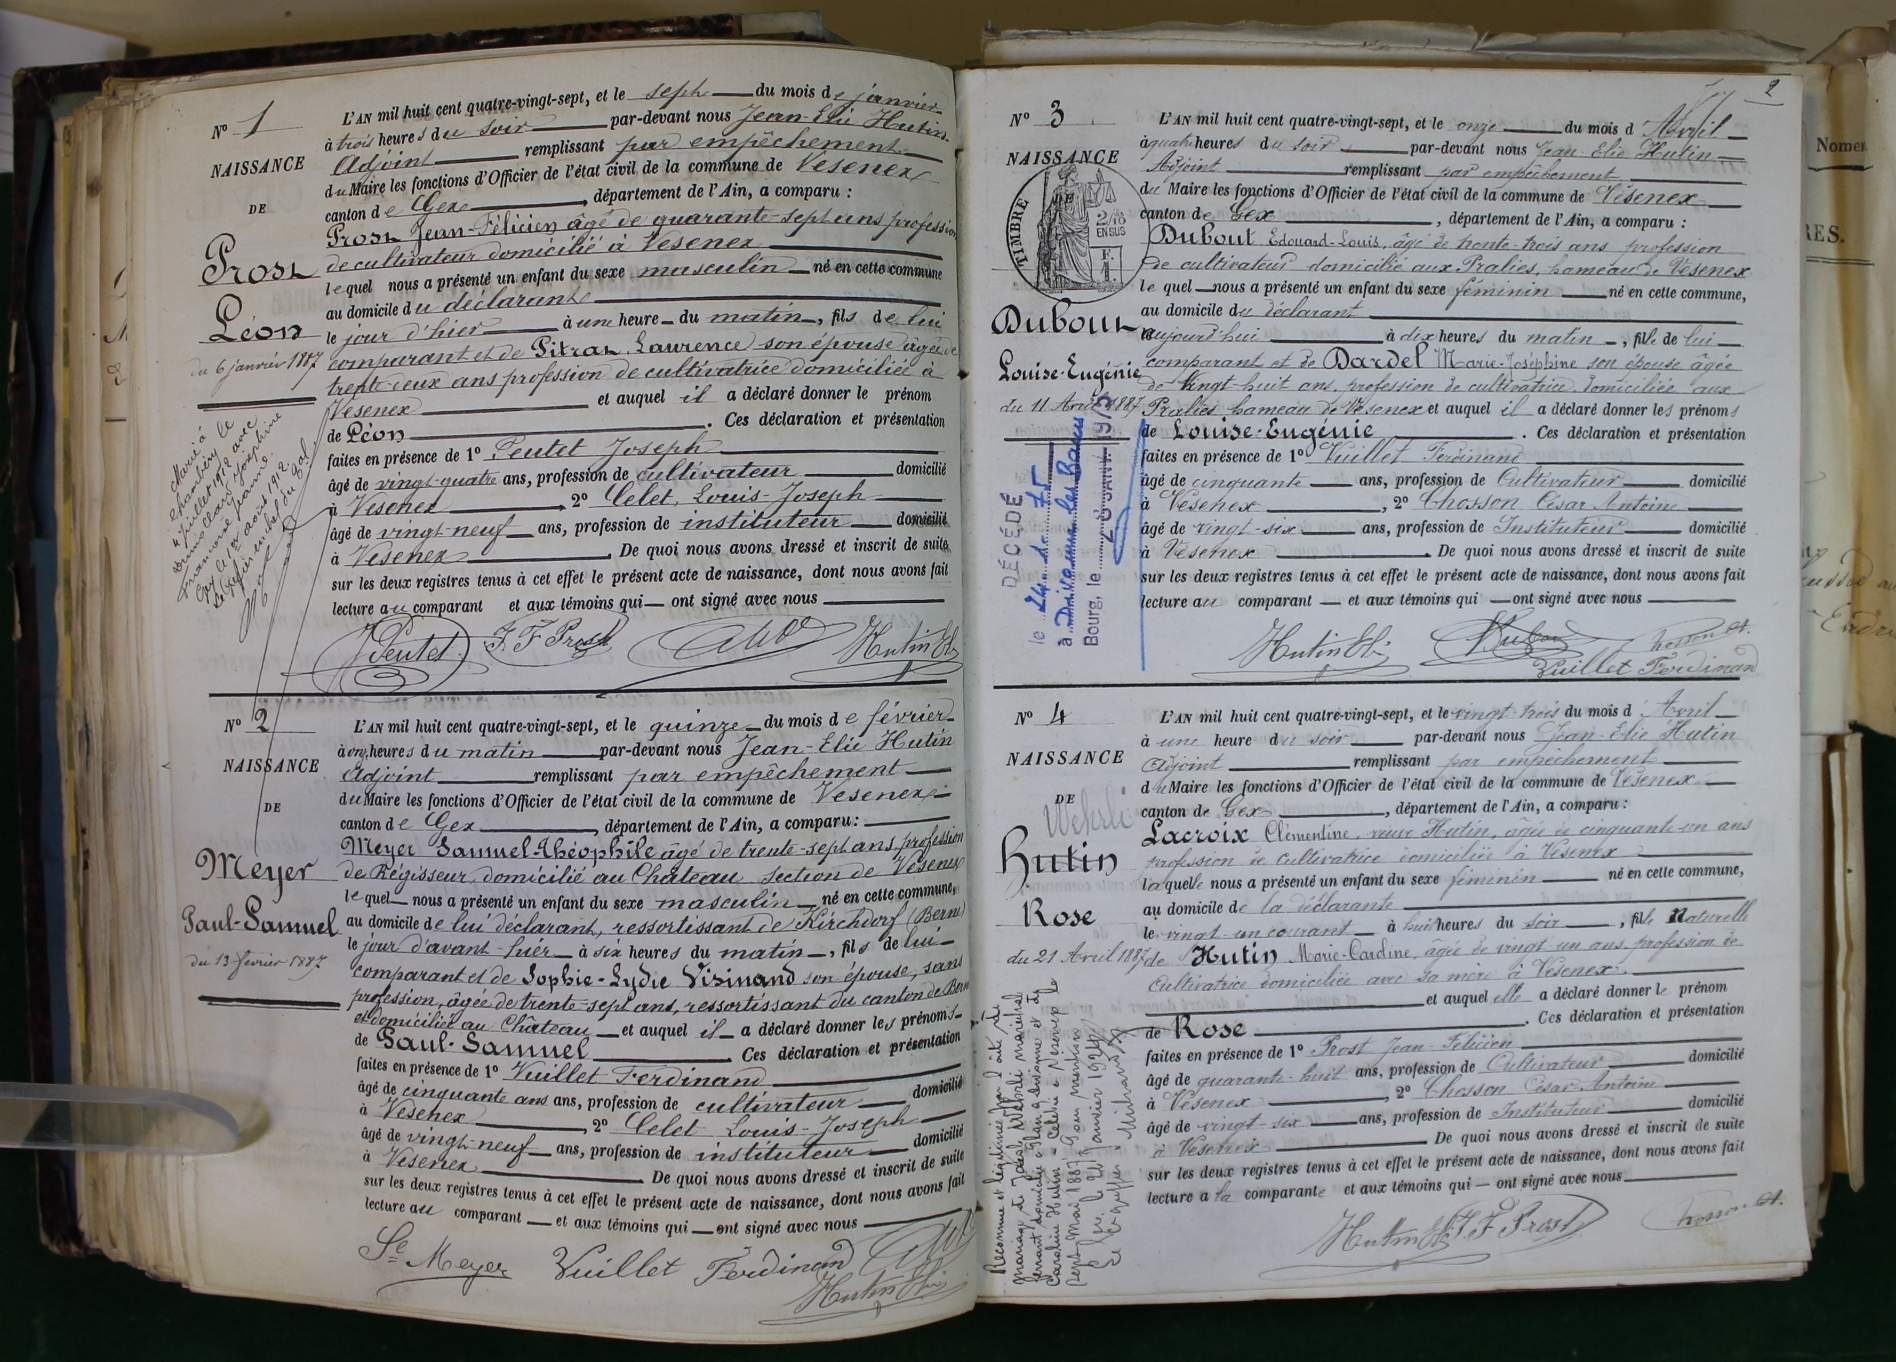 N° 1
NAISSANCE
DE
Prost
Léon
du 6 janvier 1887
Marié à
Chambéry le
4 juillet 1912 avec
L'AN mil huit cent quatre-vingt-sept, et le sept du mois de janvier
à trois heures du soir par-devant nous Jean-Elie Hutin
Adjoint remplissant par empêchement
du Maire les fonctions d'Officier de l'état civil de la commune de Vesenex
canton de Gex, département de l'Ain, a comparu :
Prost Jean-Félicien âgé de quarante-sept ans profession
de cultivateur domicilié à Vesenex
lequel nous a présenté un enfant du sexe masculin né en cette commune
au domicile du déclarant
le jour d'hier à une heure du matin, fils de lui
comparant et de Pitrat Laurence son épouse âgée de
trente deux ans profession de cultivatrice domiciliée à
Vesenex et auquel il a déclaré donner le prénom
de Léon. Ces déclaration et présentation
faites en présence de 1° Peutet Joseph
âgé de vingt-quatre ans, profession de cultivateur domicilié
à Vesenex, 2° Celet, Louis-Joseph
âgé de vingt-neuf ans, profession de instituteur domicilié
à Vesenex. De quoi nous avons dressé et inscrit de suite
sur les deux registres tenus à cet effet le présent acte de naissance, dont nous avons fait
lecture au comparant et aux témoins qui ont signé avec nous
J Peutet J. F Prost Hutin Eli
N° 2
NAISSANCE
DE
Meyer
Paul-Samuel
du 13 février 1887
L'AN mil huit cent quatre-vingt-sept, et le quinze du mois de février
à onze heures du matin par-devant nous Jean-Elie Hutin
Adjoint remplissant par empêchement
du Maire les fonctions d'Officier de l'état civil de la commune de Vesenex
canton de Gex, département de l'Ain, a comparu :
Meyer Samuel-Théophile âgé de trente-sept ans, profession
de Régisseur, domicilié au Château section de Vesenex
lequel nous a présenté un enfant du sexe masculin né en cette commune,
au domicile de lui déclarant, ressortissant de Kirchdorf (Berne)
le jour d'avant-hier à six heures du matin, fils de lui
comparant et de Sophie-Lydie Visinand son épouse, sans
profession, âgée de trente-sept ans, ressortissant du canton de Berne
et domiciliée au Château et auquel il a déclaré donner les prénoms
de Paul-Samuel. Ces déclaration et présentation
faites en présence de 1° Vuillet Ferdinand
âgé de cinquante ans ans, profession de cultivateur domicilié
à Vesenex, 2° Celet Louis-Joseph
âgé de vingt-neuf ans, profession de instituteur domicilié
à Vesenex. De quoi nous avons dressé et inscrit de suite
sur les deux registres tenus à cet effet le présent acte de naissance, dont nous avons fait
lecture au comparant et aux témoins qui ont signé avec nous
Se Meyer Vuillet Ferdinand
Hutin Eli
2
N° 3
NAISSANCE
DE
TIMBRE
2/10
EN SUS
F.
1
Dubout
Louise-Eugénie
du 11 Avril 1887
DÉCÉDÉE
à Divonne les Bains
Bourg, le
L'AN mil huit cent quatre-vingt-sept, et le onze du mois d'Avril
à quatre heures du soir par-devant nous Jean-Elie Hutin
Adjoint remplissant par empêchement
du Maire les fonctions d'Officier de l'état civil de la commune de Vesenex
canton de Gex, département de l'Ain, a comparu :
Dubout Edouard-Louis, âgé de trente-trois ans profession
de cultivateur domicilié aux Pralies, hameau de Vesenex
lequel nous a présenté un enfant du sexe féminin né en cette commune,
au domicile du déclarant
aujourd'hui à dix heures du matin, fille de lui
comparant et de Dardel Marie-Joséphine son épouse âgée
de vingt-huit ans, profession de cultivatrice domiciliée aux
Pralies hameau de Vesenex et auquel il a déclaré donner les prénoms
de Louise-Eugénie. Ces déclaration et présentation
faites en présence de 1° Vuillet Ferdinand
âgé de cinquante ans, profession de Cultivateur domicilié
à Vesenex, 2° Chosson César Antoine
âgé de vingt-six ans, profession de Instituteur domicilié
à Vesenex. De quoi nous avons dressé et inscrit de suite
sur les deux registres tenus à cet effet le présent acte de naissance, dont nous avons fait
lecture au comparant et aux témoins qui ont signé avec nous
Hutin Eli Dubout Chosson CA.
Vuillet Ferdinand
N° 4
NAISSANCE
DE
Wehrli
Hutin
Rose
du 21 Avril 1887
L'AN mil huit cent quatre-vingt-sept, et le vingt-trois du mois d'Avril
à une heure du soir par-devant nous Jean-Elie Hutin
Adjoint remplissant par empêchement
du Maire les fonctions d'Officier de l'état civil de la commune de Vesenex
canton de Gex, département de l'Ain, a comparu :
Lacroix Clémentine veuve Hutin, âgée de cinquante-un ans
profession de cultivatrice domiciliée à Vesenex
laquelle nous a présenté un enfant du sexe féminin né en cette commune,
au domicile de la déclarante
le vingt-un courant à huit heures du soir, fille Naturelle
de Hutin Marie-Caroline, âgée de vingt un ans profession de
Cultivatrice domiciliée avec sa mère à Vesenex
et auquel elle a déclaré donner le prénom
de Rose. Ces déclaration et présentation
faites en présence de 1° Prost Jean-Félicien
âgé de quarante-huit ans, profession de Cultivateur domicilié
à Vesenex, 2° Chosson César Antoine
âgé de vingt-six ans, profession de Instituteur domicilié
à Vesenex. De quoi nous avons dressé et inscrit de suite
sur les deux registres tenus à cet effet le présent acte de naissance, dont nous avons fait
lecture à la comparante et aux témoins qui ont signé avec nous
Hutin Eli J. F Prost Chosson CA.
Reconnue et légitimée par l'acte de
mariage de Jacob Wehrli maréchal
ferrant domicilié à Divonne et de
Caroline Hutin célébré à Vesenex le
sept Mai 1887. Pour mention
Gex, le 24 Janvier 1924
Le Greffier
Nomen
RES.